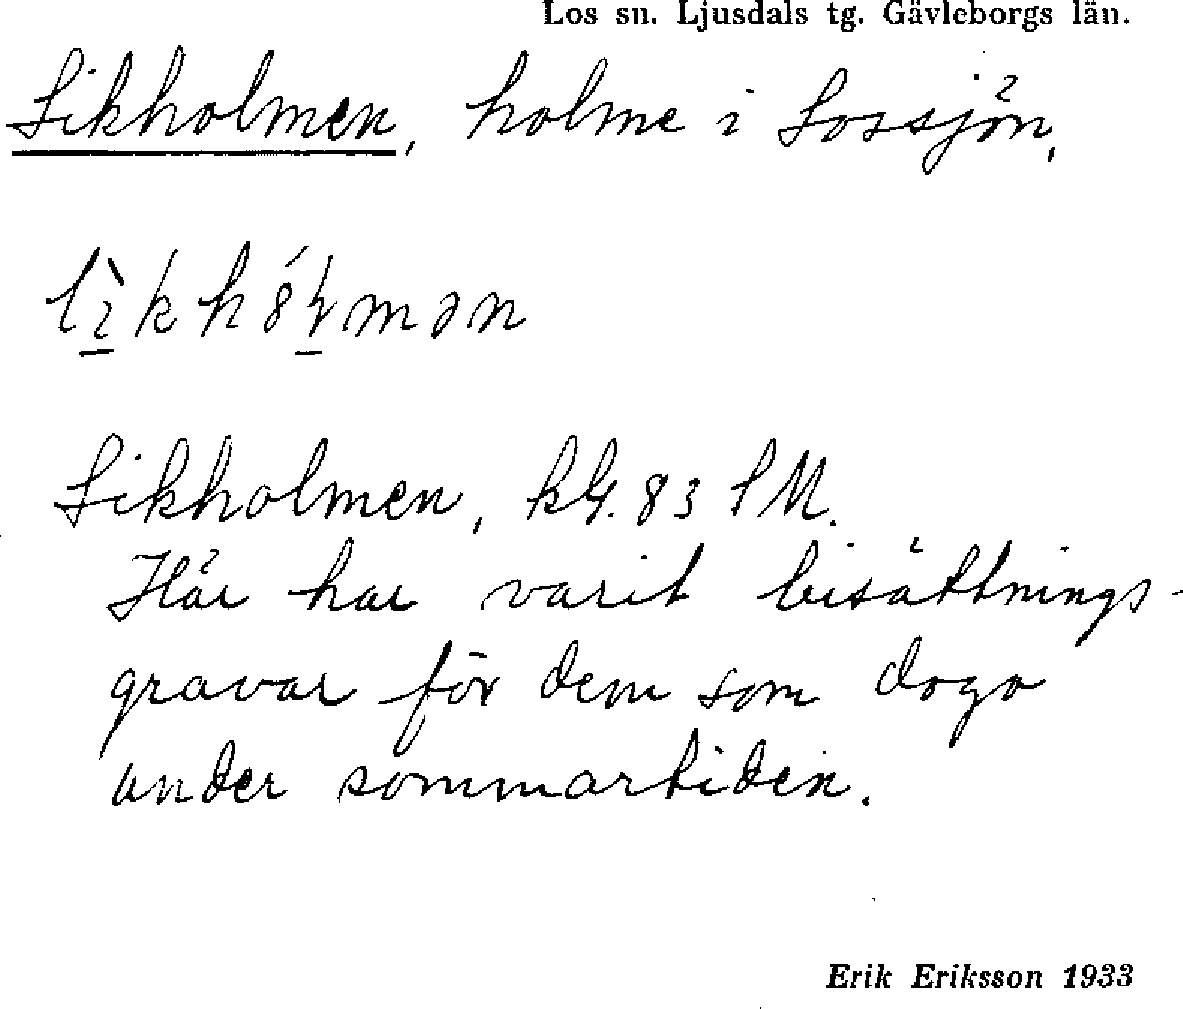 Los sn. Ljusdals tg. Gävleborgs län.
Likholmen, holme i Lossjön,
Likholmen, 83
Här har varit bisättnings-
gravar för dem som dogo
under sommartiden.
Erik Eriksson 1933